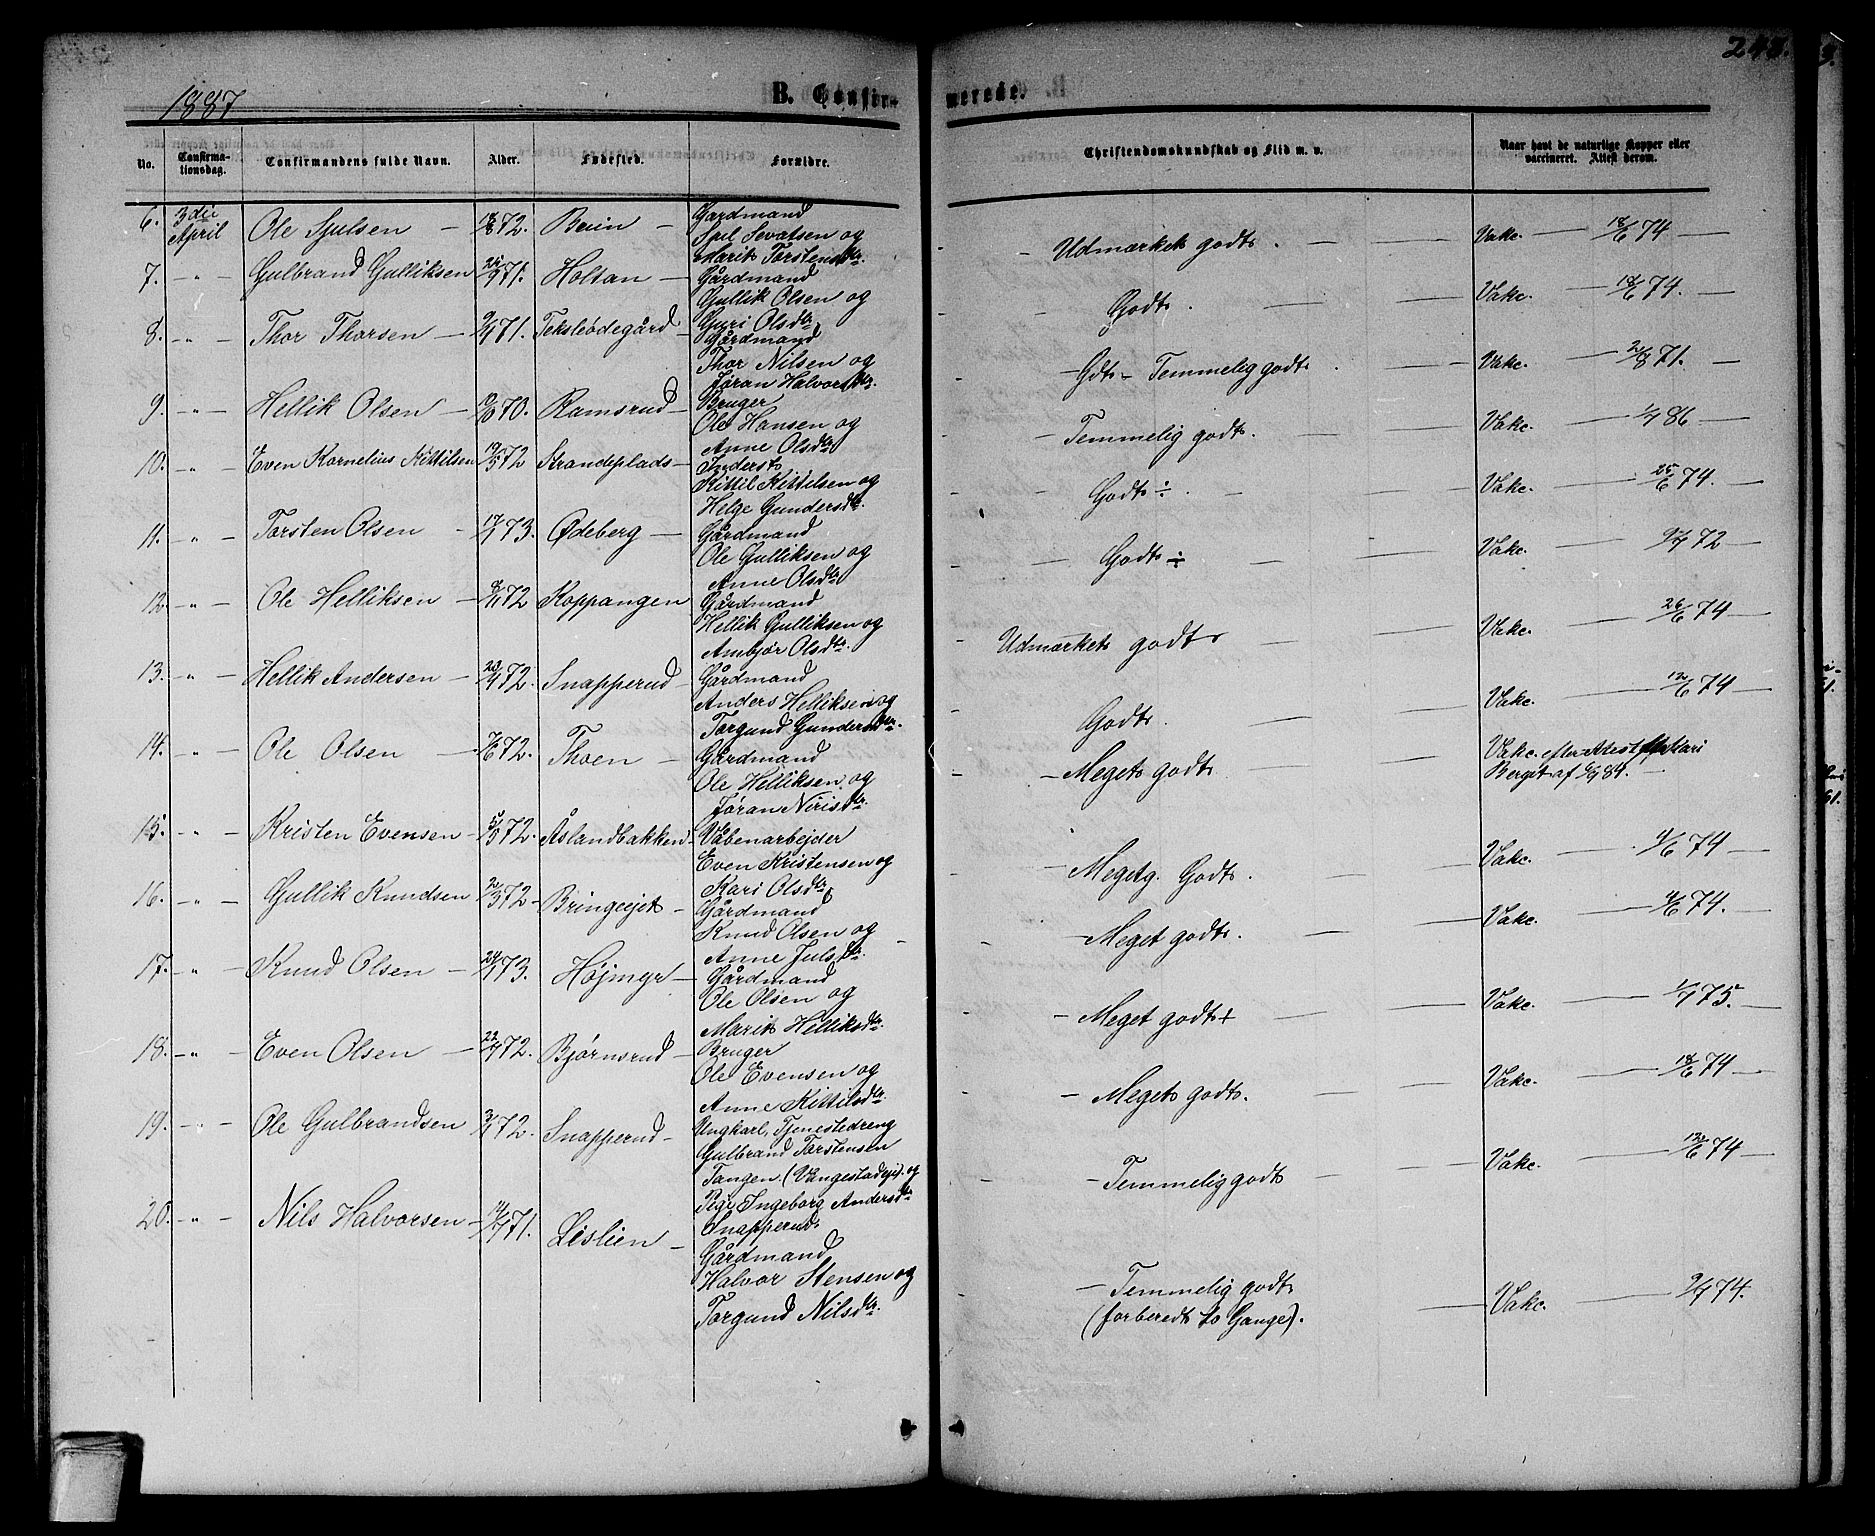 248.
1887
B. Confir- merede.
No. Confirma-tionsdag. Confirmandens fulde Navn. Alder. Fødested. Forældre. Christendomskundskab og Flid m. v. Naar havt de naturlige Kopper eller vaccineret. Attest derom.
6. 3die April Ole Sjulsen 72. Beiin Gardmand
Sjul Sevatsen og
Marit Torstensdtr. Udmærket godt. Vakc. 18/6 74
7. " Gulbrand Gulliksen 71. Holtan Gårdmand
Gullik Olsen og
Guri Olsdtr Godt. Vakc. 18/6 74.
8. " Thor Thorsen 71. Teksleødegård Gårdmand
Thor Nilsen og
Jøran Halvorsdtr. Gdt - Temmelig godt. Vakc. 2/8 71.
9. " Hellik Olsen 70. Ramsrud Bruger
Ole Hansen og
Anne Olsdtr Temmelig godt. Vakc. 86
10. " Even Kornelius Kittilsen 19/5 72 Strandeplads Inderst
Kittil Kittelsen og
Helge Gundersdtr. Godt ÷. Vakc. 25/6 74.
11. " Torsten Olsen 17/1 73. Ødeberg Gårdmand
Ole Gulliksen og
Anne Olsdtr Godt ÷ Vakc. 72
12. " Ole Helliksen 8/11 72 Koppangen Gårdmand
Hellik Gulliksen og
Ambjør Olsdtr. Udmærket godt Vakc. 26/6 74
13. " Hellik Andersen 72. Snapperud Gårdmand
Anders Helliksen og
Torgund Gundersdtr. Godt. Vakc. 12/6 74
14. " Ole Olsen 72. Thoen Gårdmand
Ole Helliksen og
Jøran Nirisdtr. Meget godt Vakc. efter Attest fra Mari
Bergit af 84.
15. " Kristen Evensen 5/5 72. Åslandbakken Våbenarbejder
Even Kristensen og
Kari Olsdtr Megetg. Godt. Vakc. 4/6 74
16. " Gullik Knudsen 2/3 72 Bringeejet Gårdmand
Knud Olsen og
Anne Julsdtr. Meget godt. Vakc. 4/6 74.
17. " Knud Olsen 24/1 73. Højmyr Gårdmand
Ole Olsen og
Marit Helliksdtr. Meget godt + Vakc. 75.
18. " Even Olsen 72. Bjørnsrud Bruger
Ole Evensen og
Anne Kittilsdtr. Meget godt. Vakc. 18/6 74
19. " Ole Gulbrandsen 72. Snapperud Ungkarl, Tjenestedreng
Gulbrand Torstensen
Tangen (Vangestadeje). og
Pige Ingeborg Andersdtr
Snapperud. Temmelig godt Vakc. 74
20. " Nils Halvorsen 71. Lislien Gårdmand
Halvor Stensen og
Torgund Nilsdtr. Temmelig godt
(forberedt to Gange). Vakc. 74.